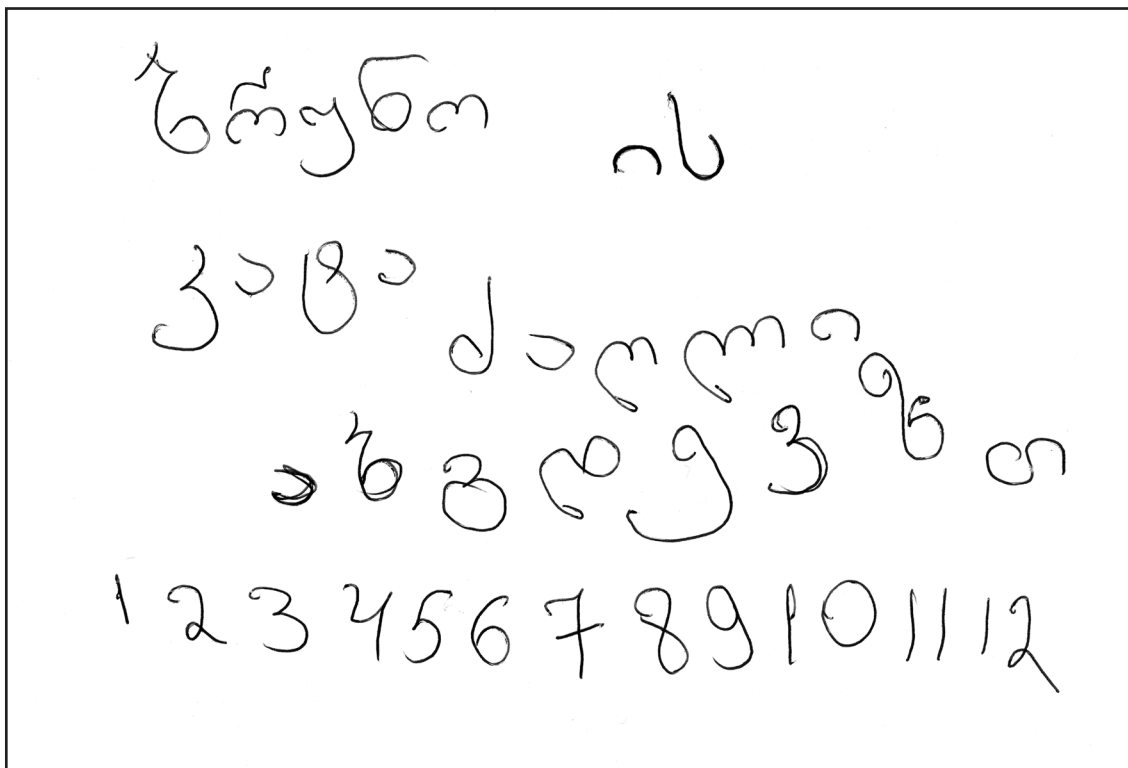 ბრუნო ის
კატა ძაღლი
ა ბ გ დ ე ვ ზ თ
1 2 3 4 5 6 7 8 9 10 11 12